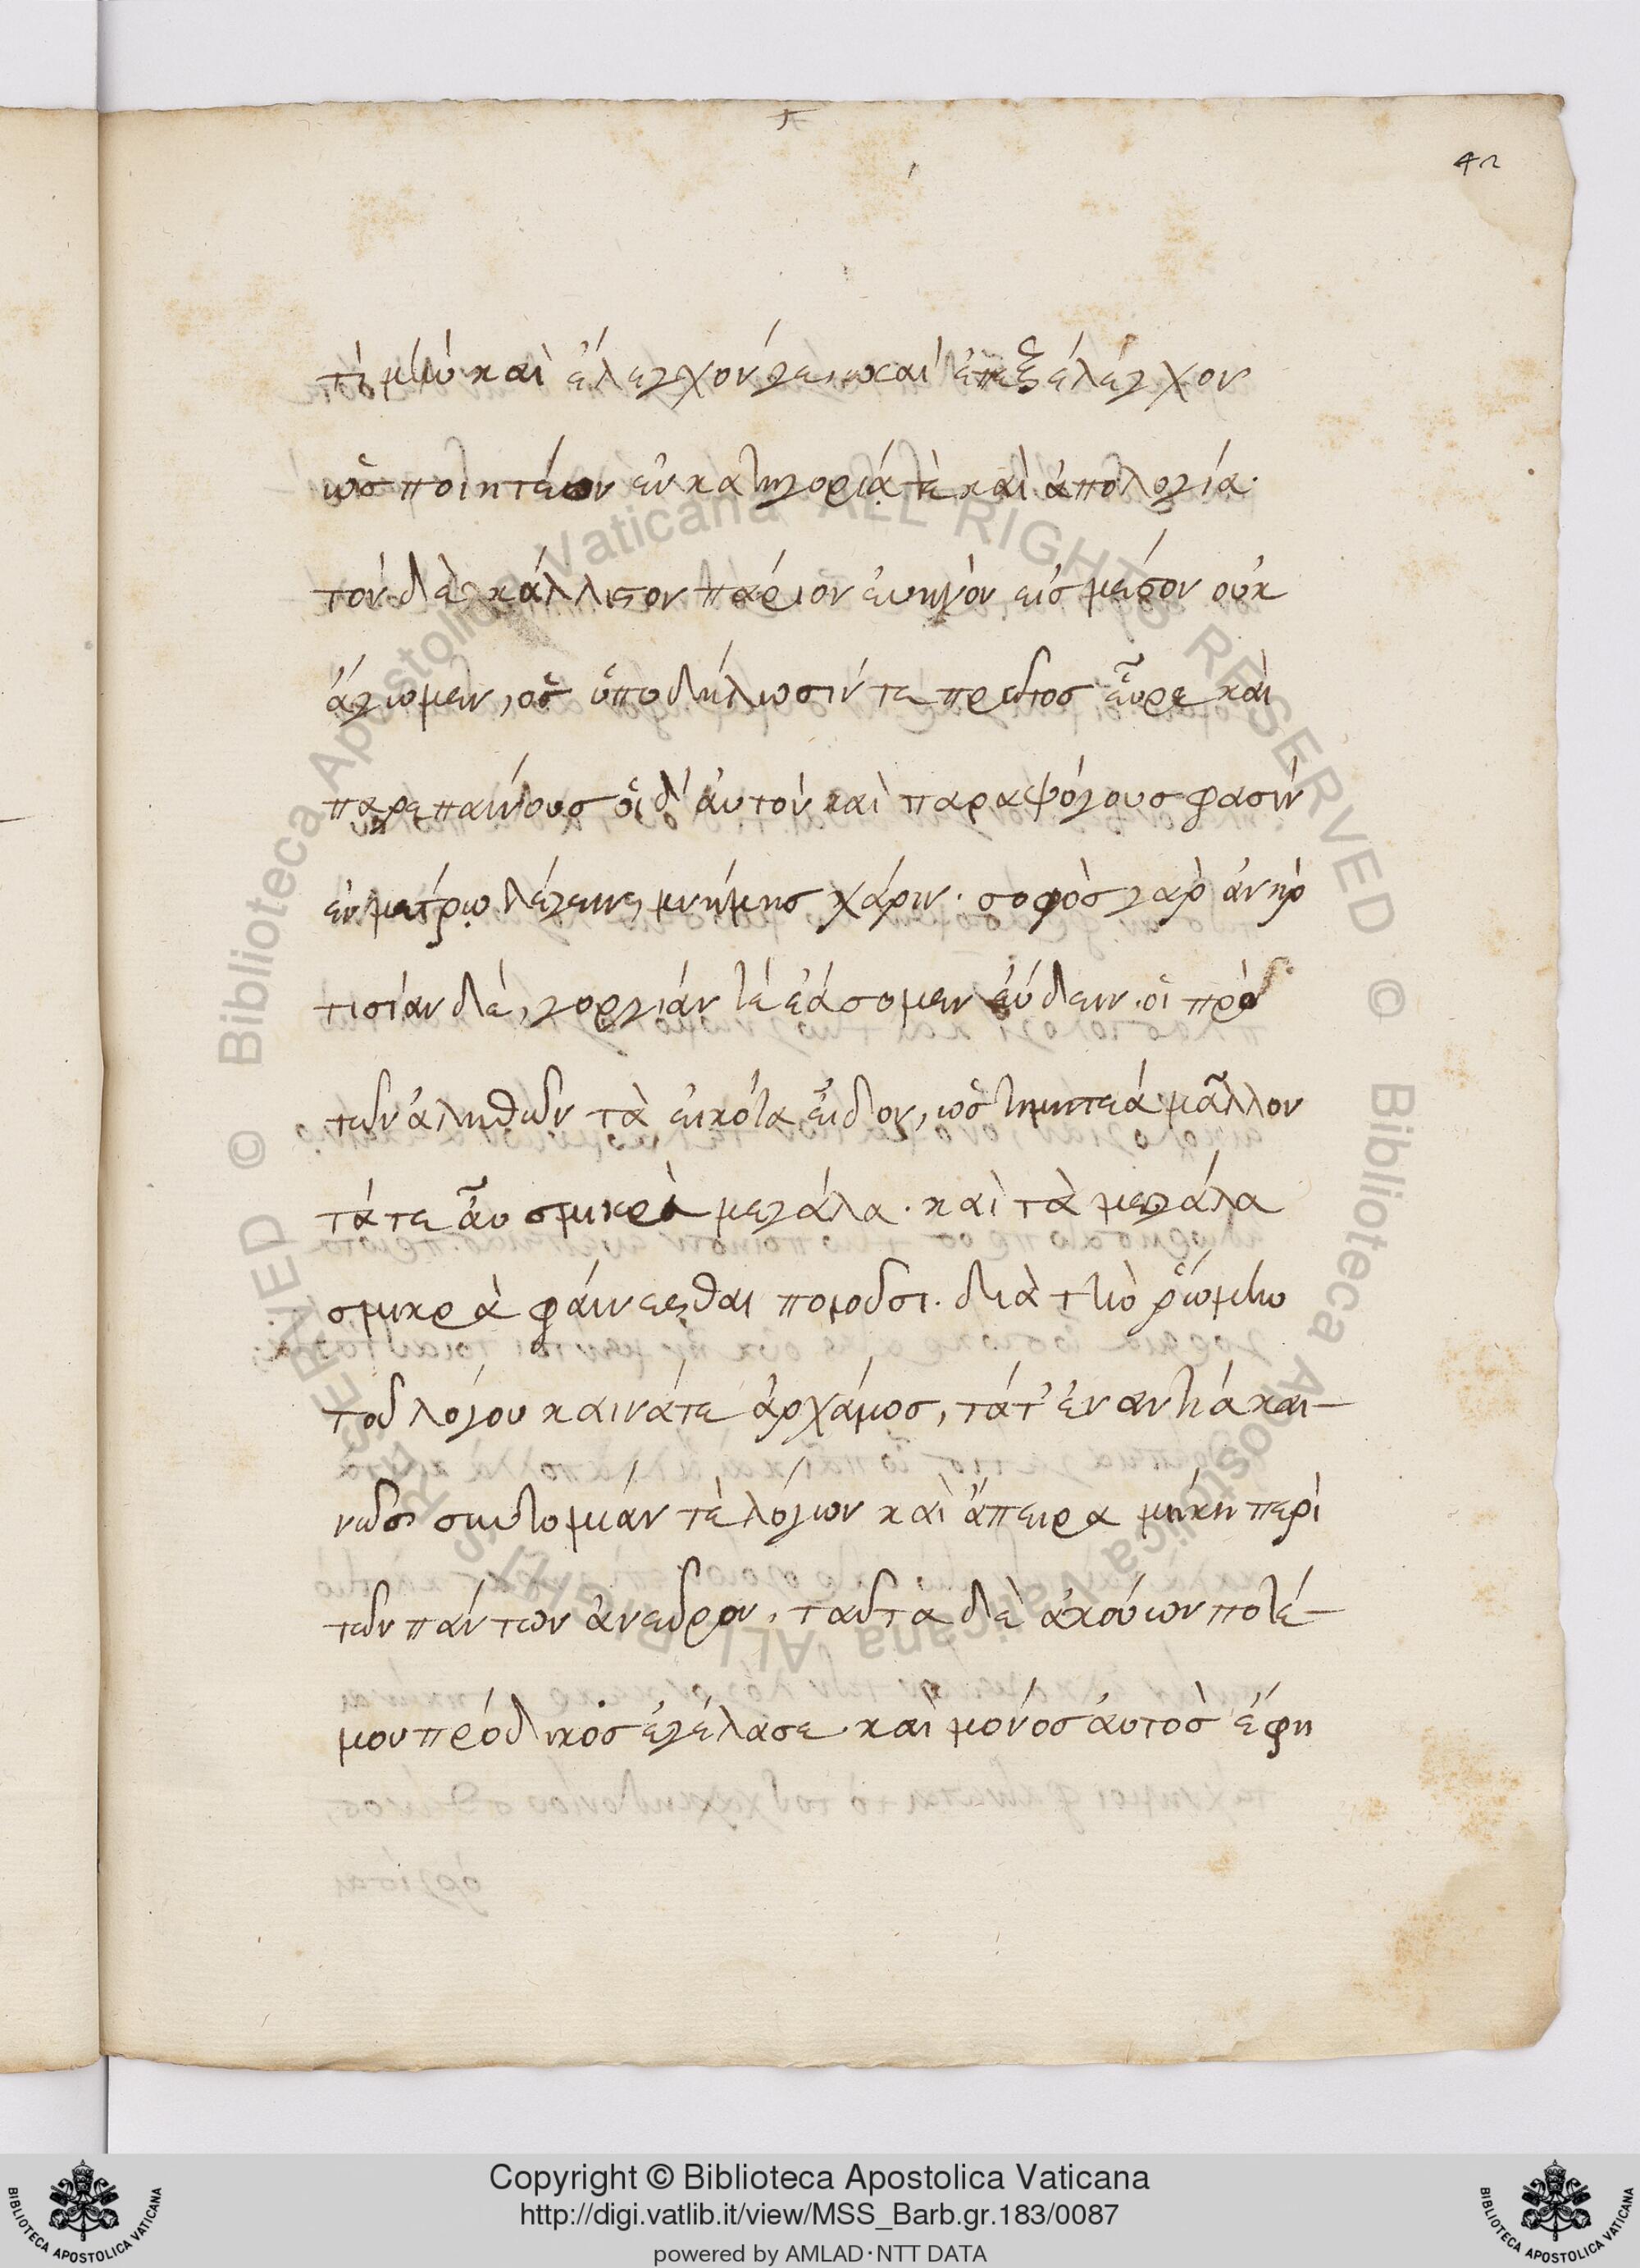 42
τί μήν καὶ ἔλεγχόν γε, καὶ ἐπεξέλεγχον
ὡς ποιητέον ἐν κατηγορίᾳ τὲ καὶ ἀπολογία.
τὸν δὲ κάλλιστον πάριον ἐυηνὸν εἰς μέσον οὐκ
ἄγομεν, ὃς ὑποδήλωσίν τε πρῶτος εὗρε καὶ
παρεπαίνους οἱ δ' ἀυτὸν καὶ παραψόγους φασὶν
ἐν μέτρῳ λέγειν, μνήμης χάριν. σοφὸς γὰρ ἀνὴρ
τισίαν δὲ, γοργίαν τὲ ἐάσομεν εὕδειν. οἱ πρὸ
τῶν ἀληθῶν τὰ εἰκότα εἶδον, ὡς τιμητέα μᾶλλον
τά τε ἂυ σμικρὰ μεγάλα. καὶ τὰ μεγάλα
σμικρὰ φαίνεσθαι ποιοῦσι. διὰ τὴν ῥώμην
τοῦ λόγου καινά τε ἀρχάιως, τά τ' ἐναντία και-
νῶς, συντομίαν τὲ λόγων καὶ ἄπειρα μήκη περὶ
τῶν πάντων ἀνεῦρον. ταῦτα δὲ ἀκούων ποτέ-
μου πρόδικος ἐγέλασε. καὶ μόνος ἀυτὸς ἔφη
Copyright © Biblioteca Apostolica Vaticana
http://digi.vatlib.it/view/MSS_Barb.gr.183/0087
powered by AMLAD·NTT DATA
BIBLIOTECA APOSTOLICA VATICANA
BIBLIOTECA APOSTOLICA VATICANA